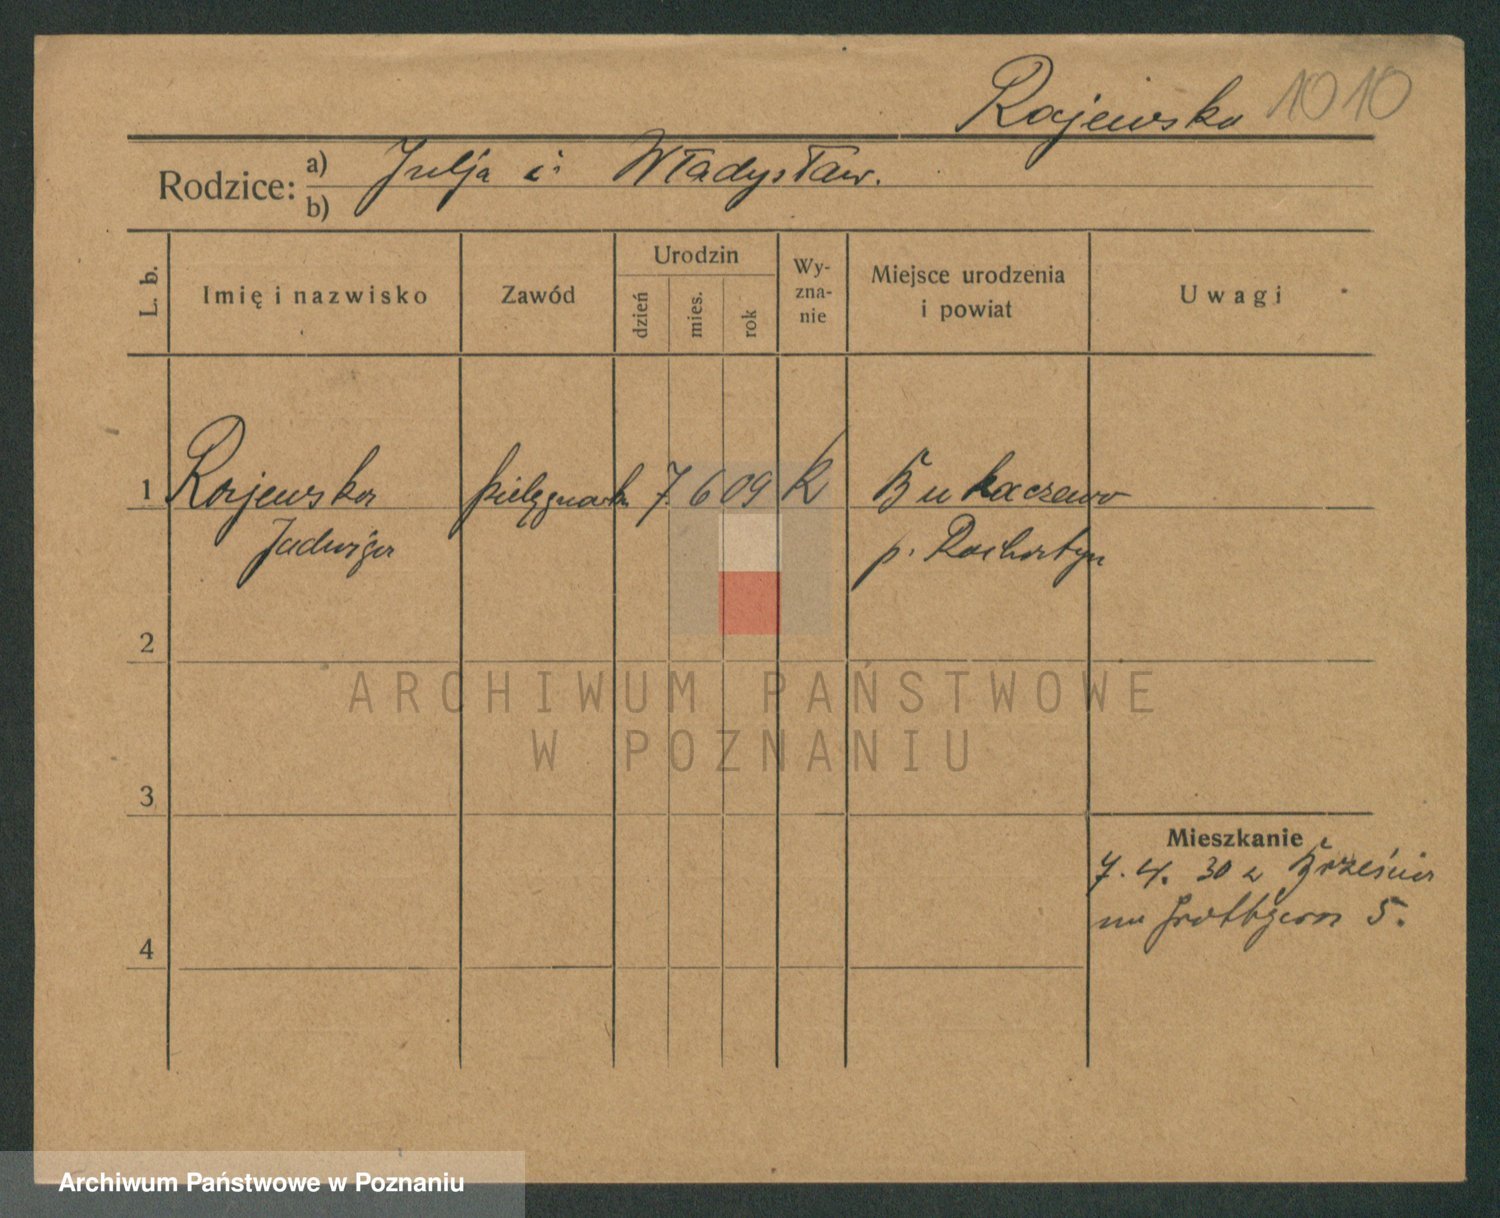 Rajewska 1010
Rodzice: a) Julja i Władysław.
b)
L. b.
Imię i nazwisko
Zawód
Urodzin
dzień
mies.
rok
Wy-
zna-
nie
Miejsce urodzenia
i powiat
Uwagi
1 Rajewska pielęgniarka 7. 6 09 K Bukaczewo
Jadwiga p. Rohatyn
2
ARCHIWUM PAŃSTWOWE
W POZNANIU
3
Mieszkanie
7. 4. 30 z Brześcia
4
Archiwum Państwowe w Poznaniu